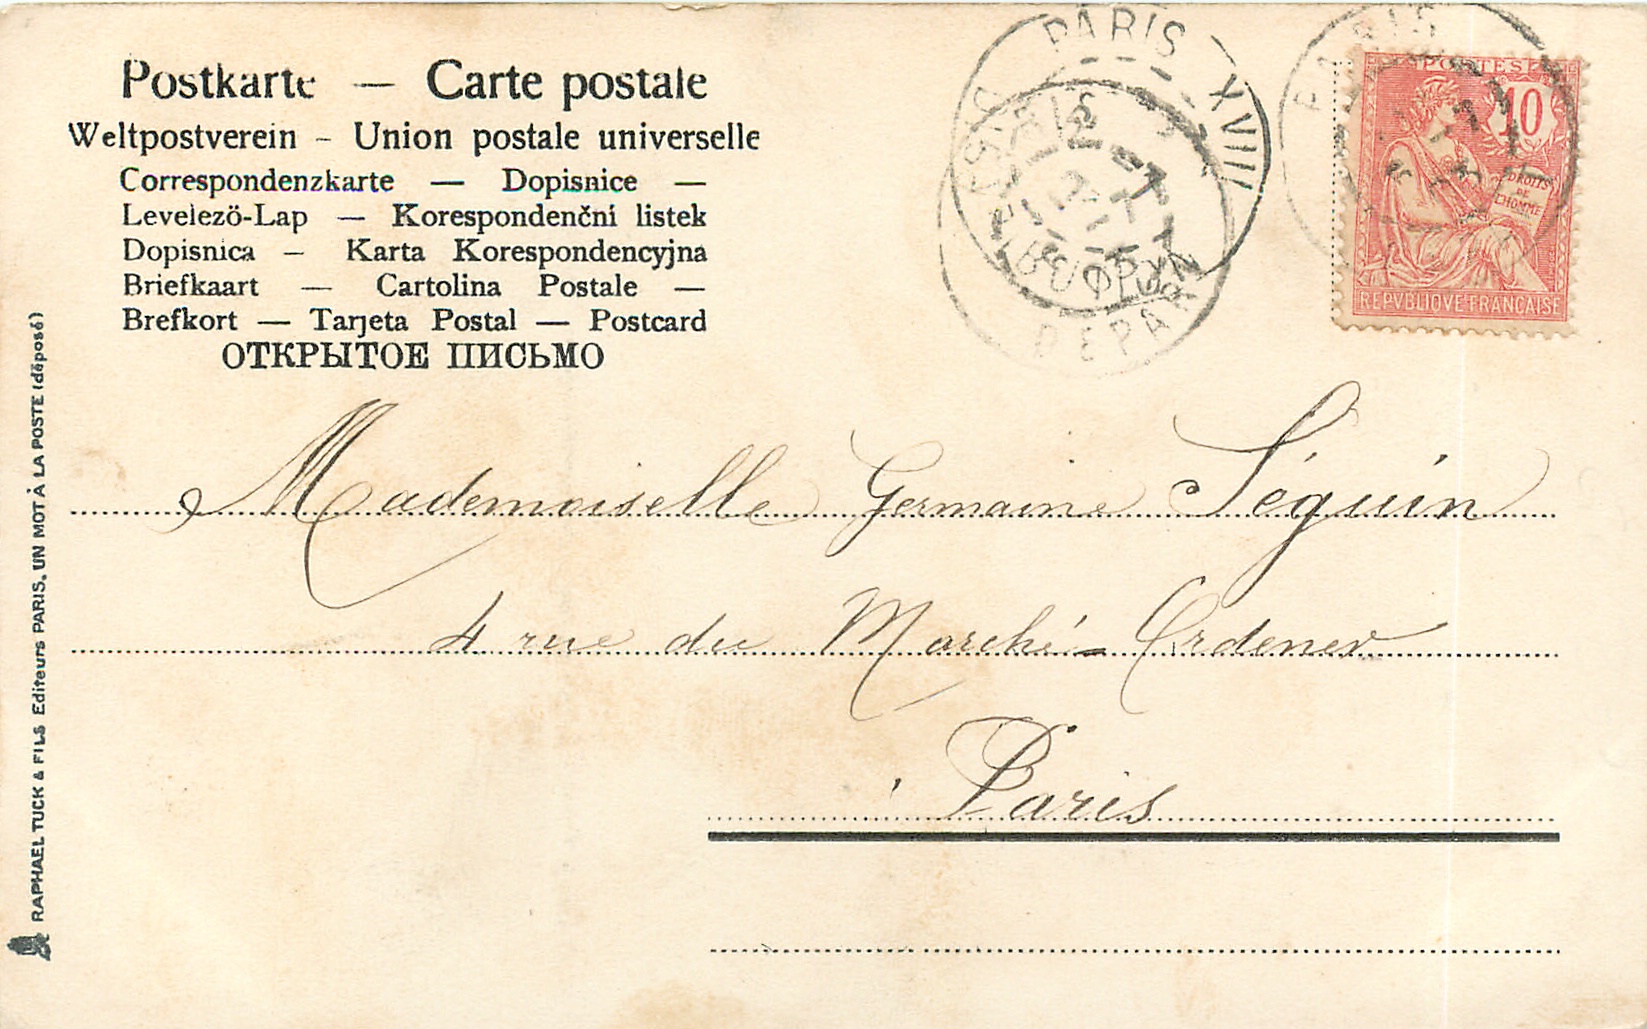 Postkarte — Carte postale
Weltpostverein – Union postale universelle
Correspondenzkarte — Dopisnice —
Levelező-Lap — Korespondenční listek
Dopisnica — Karta Korespondencyjna
Briefkaart — Cartolina Postale —
Brefkort — Tarjeta Postal — Postcard
ОТКРЫТОЕ ПИСЬМО
PARIS XVIII
DEPART
PARIS
POSTES
10
DROITS
DE
L'HOMME
REPVBLIQVE FRANÇAISE
Mademoiselle Germaine Séguin
4 rue du Marché-Ordener
Paris
RAPHAEL TUCK & FILS Editeurs PARIS. UN MOT À LA POSTE (déposé)